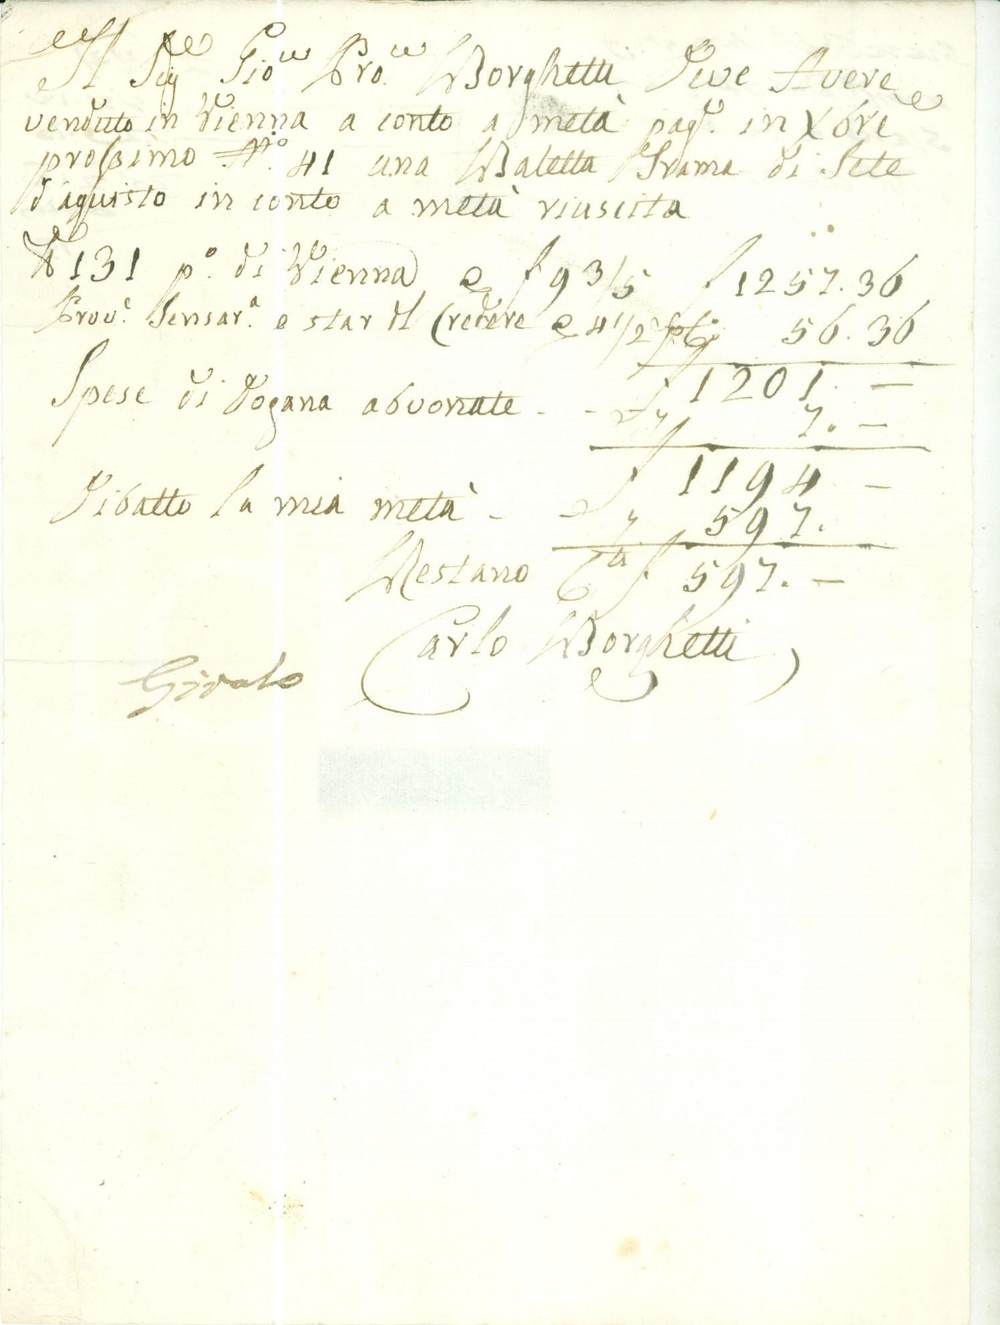 Il Sig.e Gio. Pro. Borghetti Deve Avere
venduto in Vienna a conto a metà pag.e in Xbre
prossimo N.o 41 una Baletta Trama di Sete
d'aquisto in conto a metà riuscita
℔ 131 p.o di Vienna a f 9 3/5 f 1257.36
Prov.e Sensar.a e star del Credere a 4 1/2 p% 56.36
f 1201. —
Spese di Dogana abuonate - - - 7. —
f 1194 —
Dibatto la mia metà - - 597.
Restano f 597. —
Carlo Borghetti
Girato